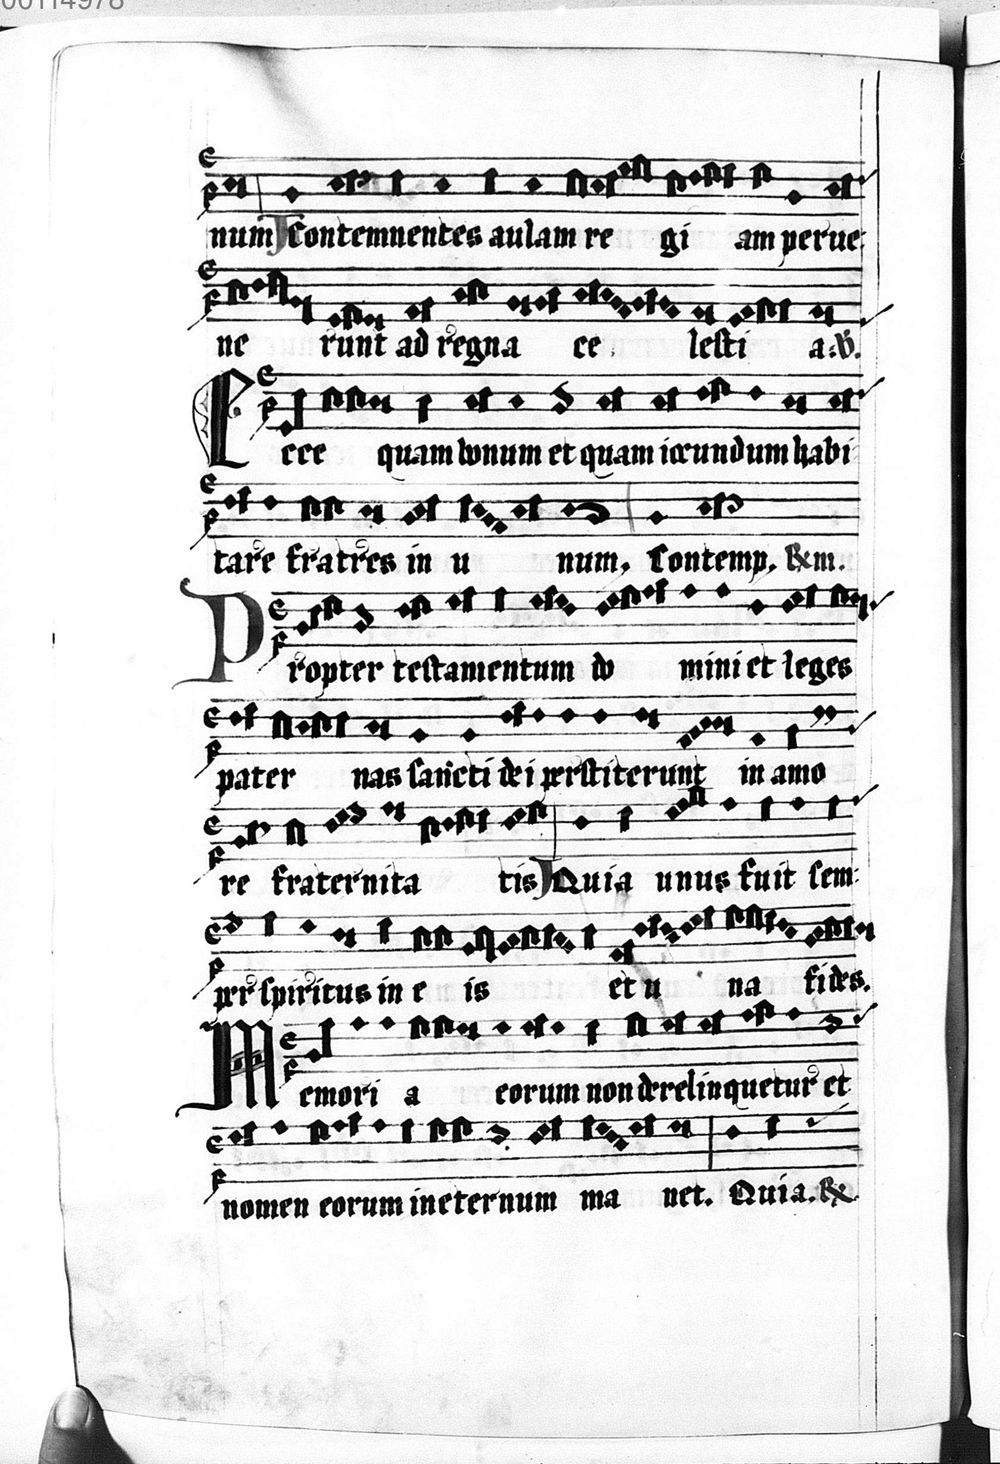 00114978
num Contemnentes aulam re gi am perue
ne runt ad regna ce lesti a. V.
Ecce quam bonum et quam iocundum habi
tare fratres in u num. Contemp. Rm.
Propter testamentum do mini et leges
pater nas sancti dei perstiterunt in amo
re fraternita tis Quia unus fuit sem
per spiritus in e is et u na fides.
Memori a eorum non derelinquetur et
nomen eorum in eternum ma net. Quia. R